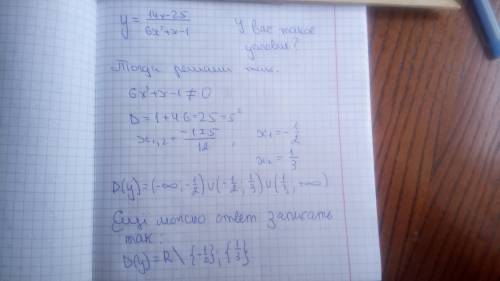 y = (14x-25)/(6x²+x-1) У вас такое
условие?
Тогда решаем так.
6x²+x-1 ≠ 0
D = 1+4·6=25=5²
x₁,₂ = (-1±5)/12 , x₁ = -1/2
x₂ = 1/3
D(y) = (-∞, -1/2)∪(-1/2, 1/3)∪(1/3, +∞)
Ещё можно ответ записать
так:
D(y) = R \ {-1/2}, {1/3}